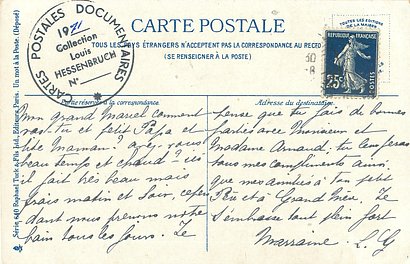 CARTES POSTALES DOCUMENTAIRES
1971
Collection
Louis
HESSENBRUCH
N°
CARTE POSTALE
TOUS LES PAYS ÉTRANGERS N'ACCEPTENT PAS LA CORRESPONDANCE AU RECTO
(SE RENSEIGNER À LA POSTE)
TOUTES LES ÉDITIONS
DE LA MAISON
RÉPUBLIQUE FRANÇAISE
25c
POSTES
Partie réservée à la correspondance.
Adresse du destinataire.
Série 640 Raphael Tuck & Fils Ltd., Editeurs, Paris. Un mot à la Poste. (Déposé)
Mon grand Marcel comment
vas tu et petit Papa et
tite Maman? avez vous
beau temps et chaud? ici
il fait très beau mais
frais matin et soir, cepen
dant nous prenons notre
bain tous les jours. Je
pense que tu fais de bonnes
parties avec Monsieur et
Madame Arnaud, tu leur feras
tous mes compliments ainsi
que mes amitiés à ton petit
et à Grand'mère. Je
t'embrasse tout plein fort
Marraine L. G